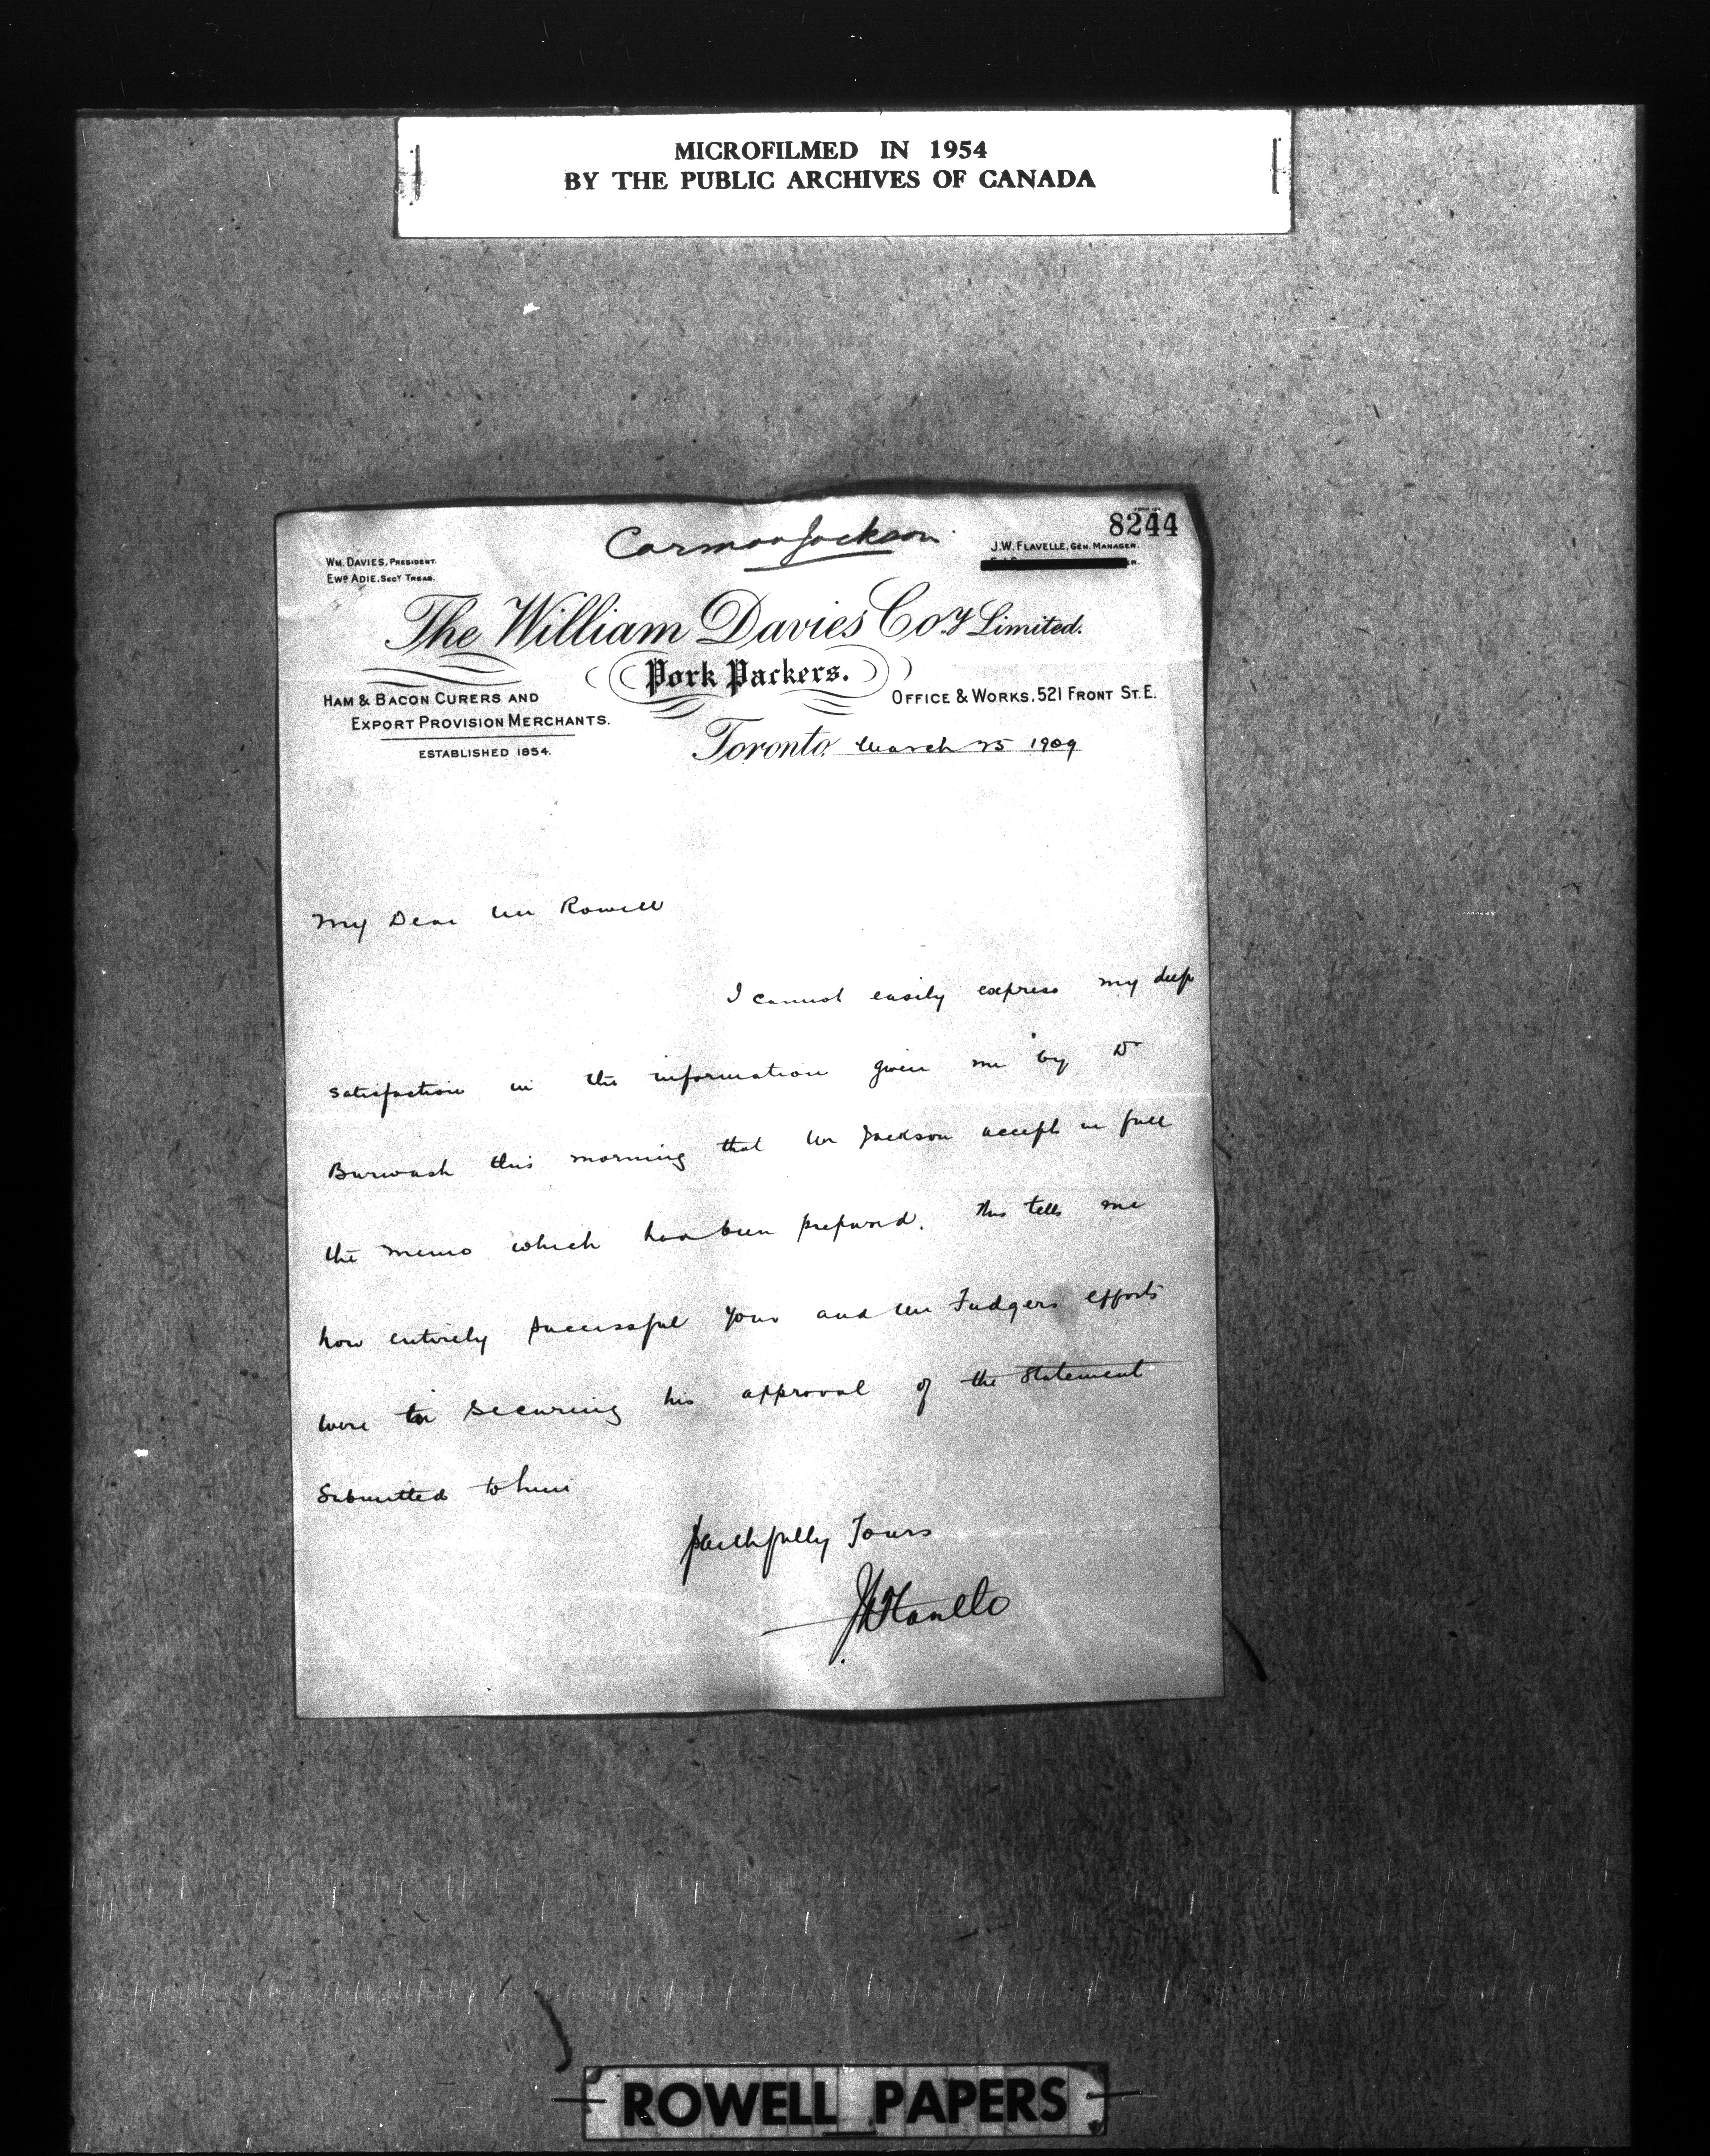 MICROFILMED IN 1954
BY THE PUBLIC ARCHIVES OF CANADA
8244
Carman Jackson
WM. DAVIES, PRESIDENT.
EWD ADIE, SECY TREAS.
J.W. FLAVELLE, GEN. MANAGER.
The William Davies Coy Limited.
Pork Packers.
HAM & BACON CURERS AND
EXPORT PROVISION MERCHANTS.
ESTABLISHED 1854.
OFFICE & WORKS, 521 FRONT ST. E.
Toronto, March 25 1909
My Dear Mr Rowell
I cannot easily express my deep
satisfaction in the information given me by Dr
Burwash this morning that Mr Jackson accepts in full
the memo which has been prepared. This tells me
how entirely successful your and Mr Fudgers efforts
were in securing his approval of the statement
submitted to him
Faithfully Yours
JW Flavelle
ROWELL PAPERS